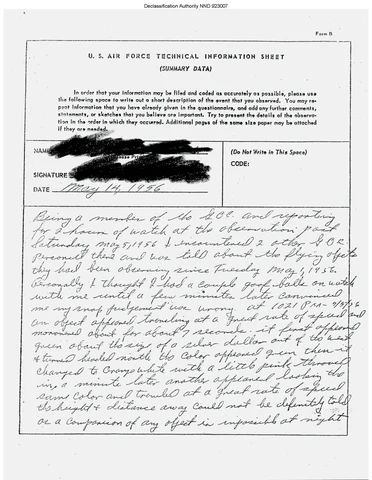 Declassification Authority NND 923007
Form B
U. S. AIR FORCE TECHNICAL INFORMATION SHEET
(SUMMARY DATA)
In order that your information may be filed and coded as accurately as possible, please use
the following space to write out a short description of the event that you observed. You may re-
peat information that you have already given in the questionnaire, and add any further comments,
statements, or sketches that you believe are important. Try to present the details of the observa-
tion in the order in which they occurred. Additional pages of the same size paper may be attached
if they are needed.
NAME
(Do Not Write in This Space)
CODE:
SIGNATURE
DATE May 14, 1956
Being a member of the G.O.C. and reporting
for 2 hours of watch at the observation post
Saturday May 5, 1956 I encountered 2 other G.O.C.
Personel there and was told about the flying objects
they had been observing since Tuesday May 1, 1956.
Personally I thought I had a couple goof balls on watch
with me until a few minutes later convinced
me my snap judgement was wrong. at 1021 P.M.
an object appeared traveling at a great rate of speed and
manuevered about for about 7 seconds it first appeared
green about the size of a silver dollar out of the west
& turned headed north the color appeared green then it
changed to orange white with a little pink thrown
in, a minute later another appeared looking the
same color and traveled at a great rate of speed
the height & distance away could not be definitely told
as a comparison of any object is impossible at night